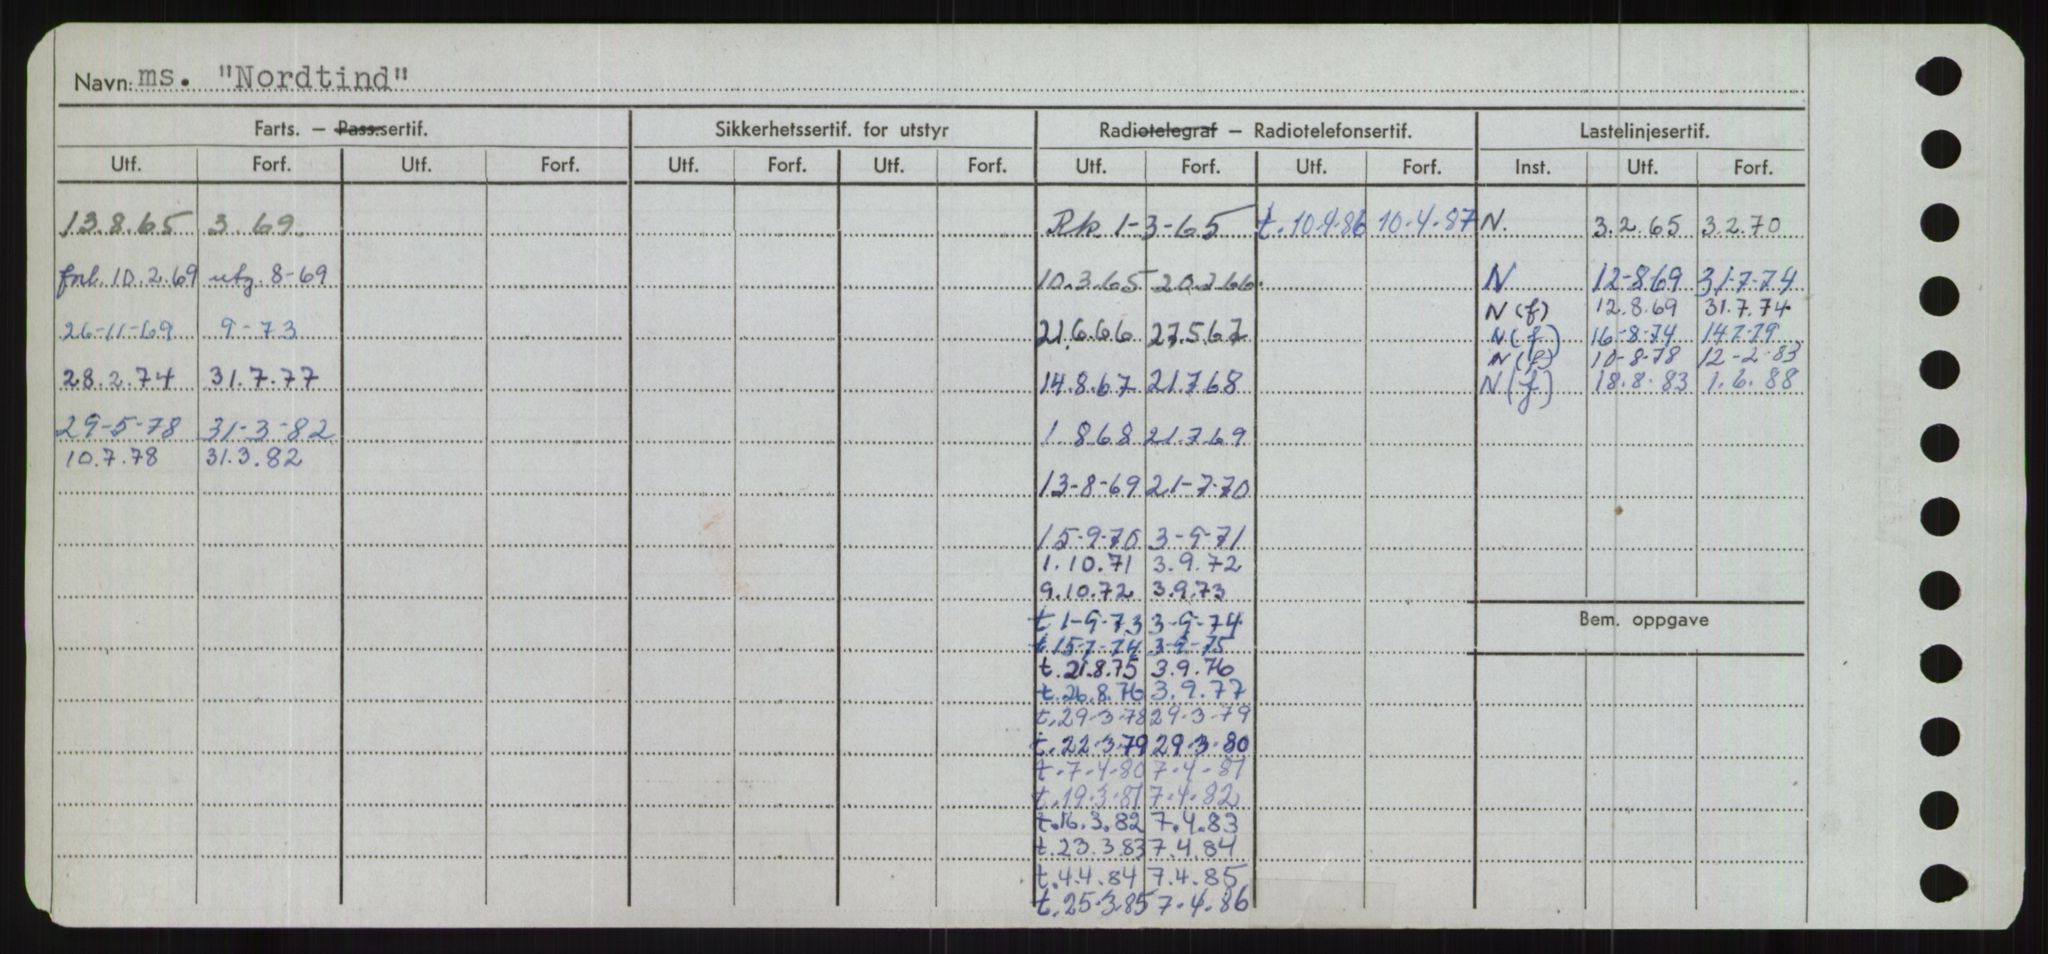 Navn: ms. "Nordtind"
Farts. — Pass.sertif. Sikkerhetssertif. for utstyr Radiotelegraf — Radiotelefonsertif. Lastelinjesertif.
Utf. Forf. Utf. Forf. Utf. Forf. Utf. Forf. Utf. Forf. Utf. Forf. Inst. Utf. Forf.
13.8.65 3.69. Rk. 1-3-65 t. 10.4.86 10.4.87 N. 3.2.65 3.2.70
forl. 10.2.69 utg. 8-69 10.3.65 20.2.66. N 12-8-69 31-7-74
N (f) 12.8.69 31.7.74
26-11-69 9-73 21.6.66 27.5.67 N (f) 16-8-74 14.7.79
N (f) 10-8-78 12-2-83
28.2.74 31.7.77 14.8.67 21.7.68 N (f) 18.8.83 1.6.88
29-5-78 31-3-82 1.8.68 21.7.69
10.7.78 31.3.82
13-8-69 21-7-70
15-9-70 3-9-71
1.10.71 3.9.72
9.10.72 3.9.73
t 1-9-73 3-9-74
Bem. oppgave
t 15-7-74 3-9-75
t. 21.8.75 3.9.76
t. 26.8.76 3.9.77
t. 29-3-78 29-3-79
t. 22-3-79 29-3-80
t. 7.4.80 7.4.81
t. 19.3.81 7.4.82
t. 16.3.82 7.4.83
t. 23.3.83 7.4.84
t. 4.4.84 7.4.85
t. 25.3.85 7.4.86